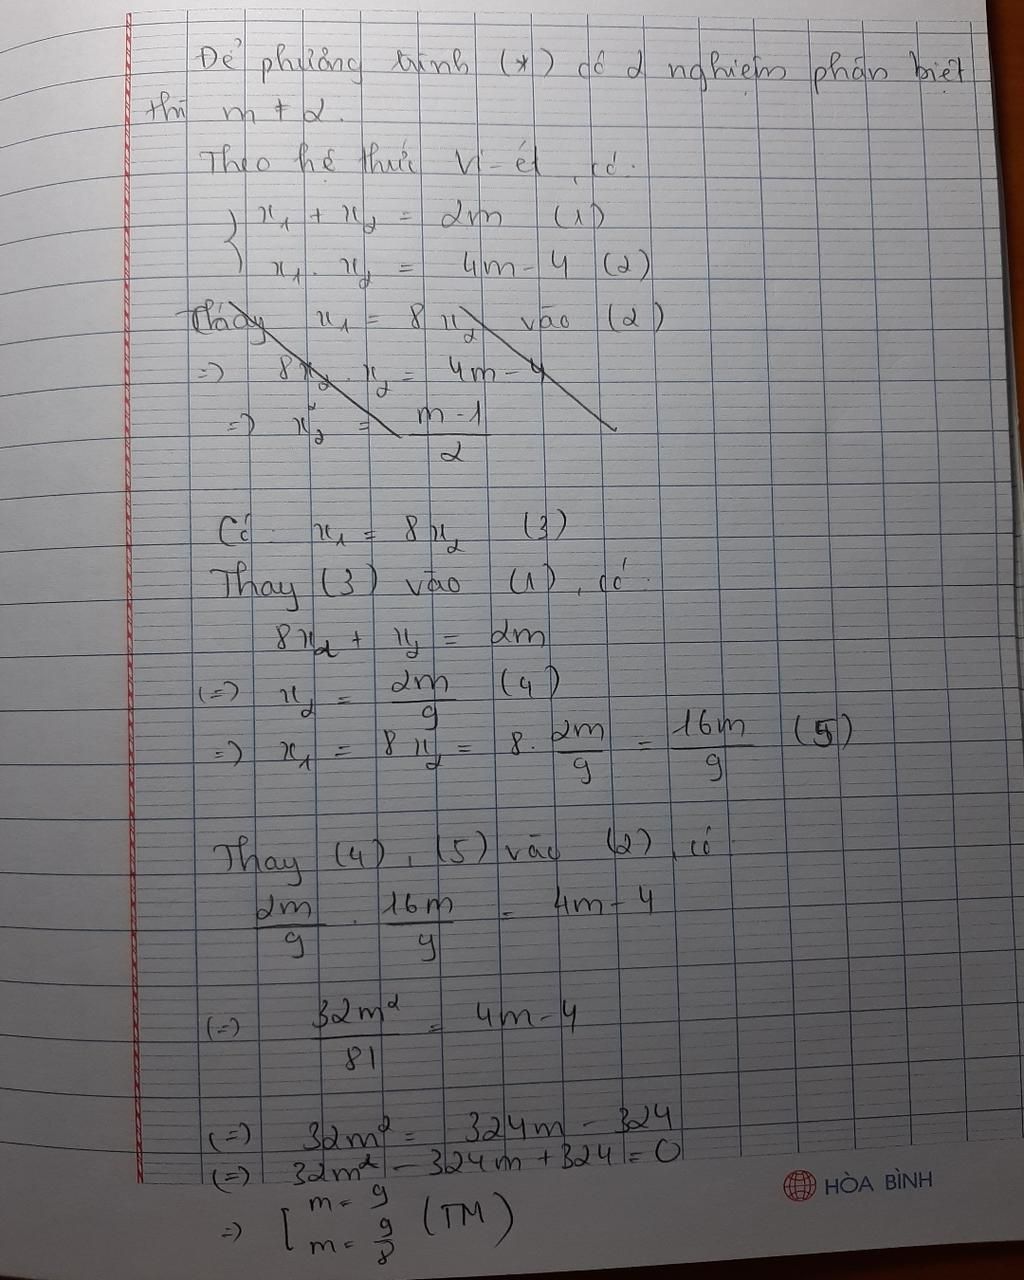 Để phương trình (*) có 2 nghiệm phân biệt
thì m ≠ 2.
Theo hệ thức Vi-ét, có:
{ x₁ + x₂ = 2m (1)
x₁ . x₂ = 4m - 4 (2)
Thay x₁ = 8x₂ vào (2)
=> 8x₂ . x₂ = 4m - 4
=> x₂² = \frac{m-1}{2}
Có: x₁ = 8x₂ (3)
Thay (3) vào (1), có:
8x₂ + x₂ = 2m
(=) x₂ = \frac{2m}{9} (4)
=> x₁ = 8x₂ = 8 . \frac{2m}{9} = \frac{16m}{9} (5)
Thay (4), (5) vào (2), có
\frac{2m}{9} . \frac{16m}{9} = 4m - 4
(=) \frac{32m²}{81} = 4m - 4
(=) 32m² = 324m - 324
(=) 32m² - 324m + 324 = 0
=> [ m = 9
m = \frac{9}{8} (TM)
HÒA BÌNH